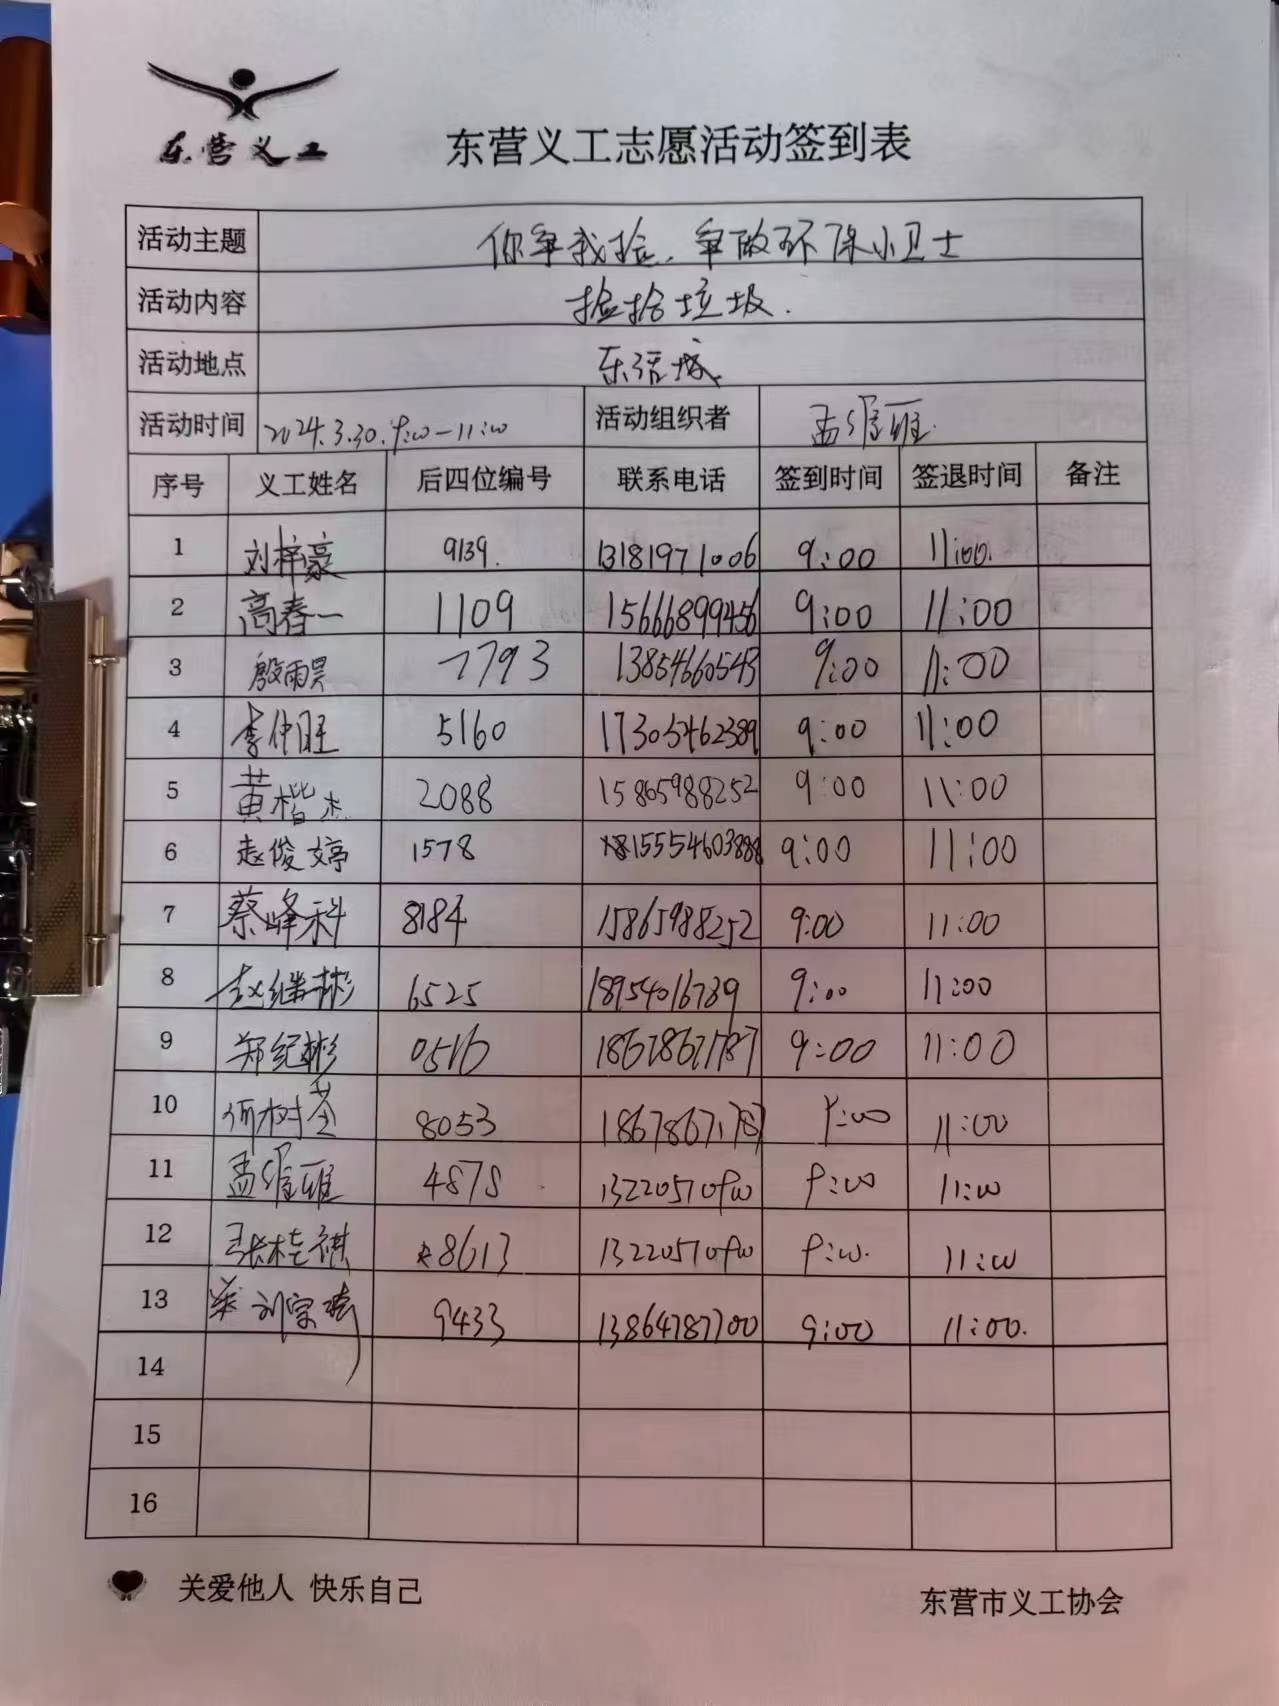 东营义工
东营义工志愿活动签到表
活动主题 你争我捡、争做环保小卫士
活动内容 捡拾垃圾.
活动地点 东
活动时间 2024.3.30. 9:00-11:00 活动组织者 孟维
序号 义工姓名 后四位编号 联系电话 签到时间 签退时间 备注
1 刘梓豪 9139. 13181971006 9:00 11:00.
2 高春一 1109 15666899456 9:00 11:00
3 殷雨昊 7793 13854660543 9:00 11:00
4 李仲旺 5160 17305462389 9:00 11:00
5 黄楷杰 2088 15865988252 9:00 11:00
6 赵俊婷 1578 15554603888 9:00 11:00
7 蔡峰科 8184 15865988252 9:00 11:00
8 赵继彬 6525 18954016739 9:00 11:00
9 郑纪彬 0516 18678671787 9:00 11:00
10 何树荃 8053 18678671787 9:00 11:00
11 孟维 4878 13220510900 9:00 11:00
12 张桂祺 8613 13220510900 9:00. 11:00
13 刘宗 9433 13864787700 9:00 11:00.
14
15
16
关爱他人 快乐自己
东营市义工协会